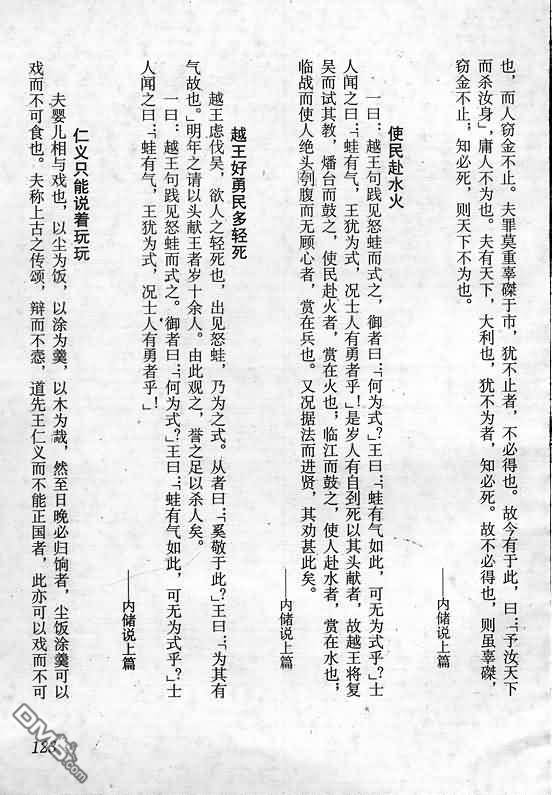 也，而人窃金不止。夫罪莫重辜磔于市，犹不止者，不必得也。故今有于此，曰：“予汝天下
而杀汝身”，庸人不为也。夫有天下，大利也，犹不为者，知必死。故不必得也，则虽辜磔，
窃金不止；知必死，则天下不为也。
——内储说上篇
使民赴水火
一曰：越王句践见怒蛙而式之，御者曰：“何为式？”王曰：“蛙有气如此，可无为式乎？”士
人闻之曰：“蛙有气，王犹为式，况士人有勇者乎！”是岁人有自刭死以其头献者，故越王将复
吴而试其教，燔台而鼓之，使民赴火者，赏在火也；临江而鼓之，使人赴水者，赏在水也；
临战而使人绝头刳腹而无顾心者，赏在兵也。又况据法而进贤，其劝甚此矣。
——内储说上篇
越王好勇民多轻死
越王虑伐吴，欲人之轻死也，出见怒蛙，乃为之式。从者曰：“奚敬于此？”王曰：“为其有
气故也。”明年之请以头献王者岁十余人。由此观之，誉之足以杀人矣。
一曰：越王句践见怒蛙而式之。御者曰：“何为式？”王曰：“蛙有气如此，可无为式乎？”士
人闻之曰：“蛙有气，王犹为式，况士人有勇者乎！”
——内储说上篇
仁义只能说着玩玩
夫婴儿相与戏也，以尘为饭，以涂为羹，以木为胾，然至日晚必归饷者，尘饭涂羹可以
戏而不可食也。夫称上古之传颂，辩而不悫，道先王仁义而不能正国者，此亦可以戏而不可
123